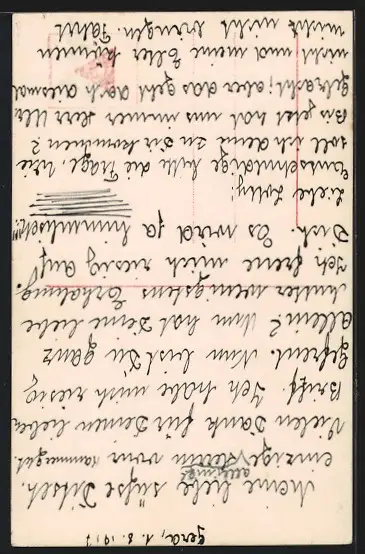 Gera, 1.8.1917
Meine liebe süsse
einzige
Vielen Dank für Deinen lieben
Brief. Ich habe mich riesig
gefreut. Nun bist Du ganz
allein? Nun hat Deine liebe
Mutter wenigstens Erholung.
Ich freue mich riesig auf
Dich. Es wird ja himmlisch!!
Liebe Lotty!
Entschuldige bitte die Frage, wie
soll ich denn zu Dir kommen?
Bis jetzt hat uns immer Herr
gebracht; aber das geht doch diesmal
nicht und meine Elter können
mich nicht bringen. Fährt